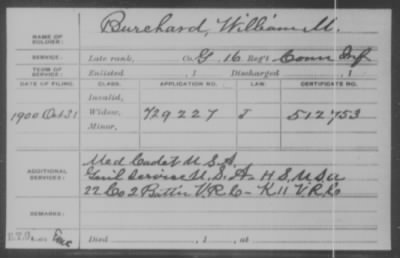 NAME OF SOLDIER: Burchard, William M.
SERVICE: Late rank, Co. G, 16 Reg't Conn Inf
TERM OF SERVICE: Enlisted , 1 Discharged , 1
DATE OF FILING. CLASS. APPLICATION NO. LAW. CERTIFICATE NO.
Invalid,
1900 Oct 31 Widow, 729227 J 512753
Minor,
Med Cadet U.S.A.
ADDITIONAL SERVICES: Genl Service U.S.A - H S, U S A
22 Co 2 Batt'n V.R.C - K 11 V.R.C
REMARKS:
Died , 1 , at